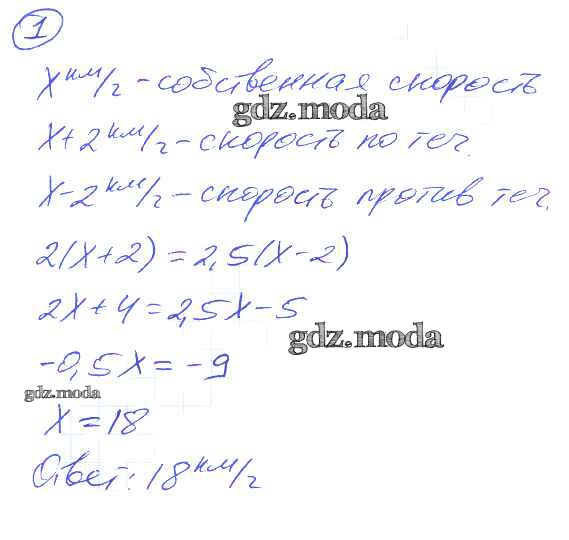 1
x км/г - собственная скорость
gdz.moda
x+2 км/г - скорость по теч.
x-2 км/г - скорость против теч.
2(x+2) = 2,5(x-2)
2x+4=2,5x-5
gdz.moda
-0,5x = -9
gdz.moda
x = 18
Ответ: 18 км/г